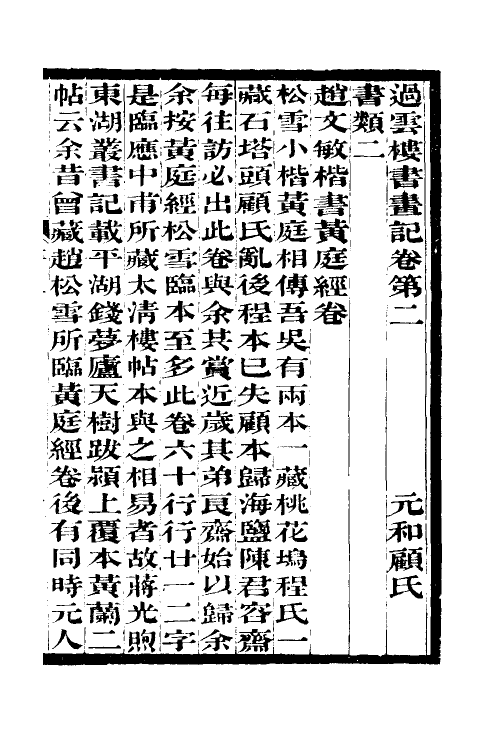 過雲樓書畫記卷第二　元和顧氏
書類二
趙文敏楷書黃庭經卷
松雪小楷黃庭相傳吾吳有兩本一藏桃花塢程氏一
藏石塔頭顧氏亂後程本已失顧本歸海鹽陳君容齋
每往訪必出此卷與余共賞近歲其弟良齋始以歸余
余按黃庭經松雪臨本至多此卷六十行行廿一二字
是臨應中甫所藏太清樓帖本與之相易者故蔣光煦
東湖叢書記載平湖錢夢廬天樹跋潁上覆本黃蘭二
帖云余昔曾藏趙松雪所臨黃庭經卷後有同時元人